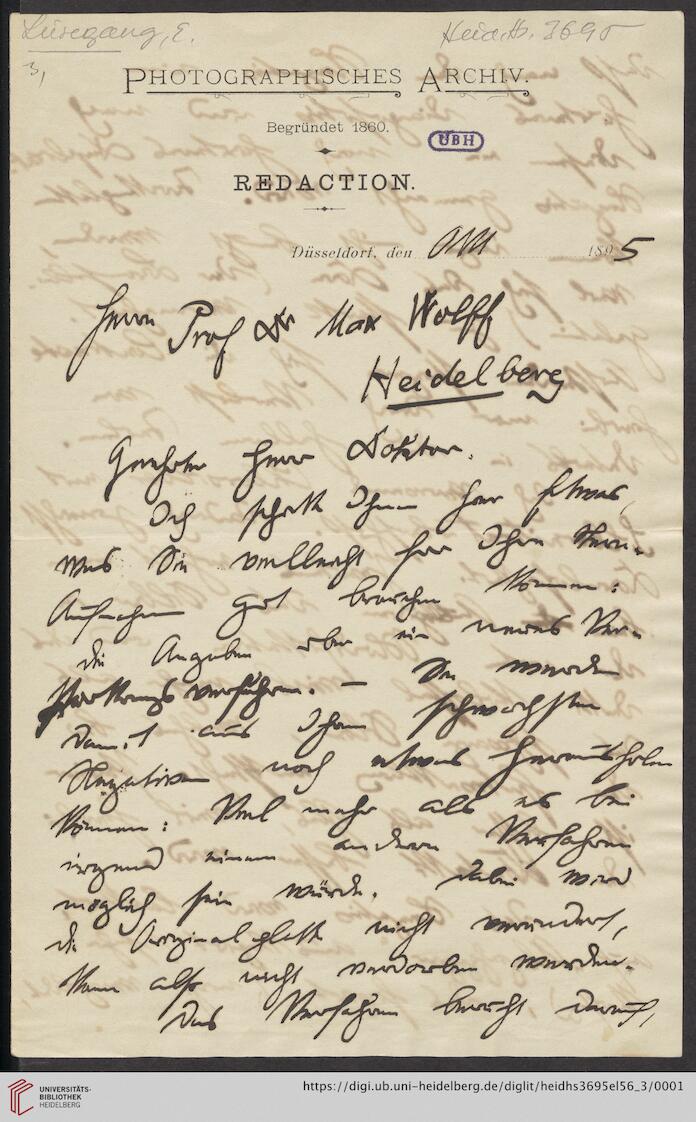 Liesegang, E.
Heid. Hs. 3695
3,
PHOTOGRAPHISCHES ARCHIV.
Begründet 1860.
UBH
REDACTION.
Düsseldorf, den 189 5
Herrn Prof Dr Max Wolff
Heidelberg
Geehrter Herr Doktor.
Ich schicke Ihnen hier Etwas,
was Sie vielleicht für Ihre Stern-
Aufnahmen gut brauchen können:
die Angaben über ein neues Ver-
stärkungsverfahren. — Sie werden
damit aus Ihren schwächsten
Negativen noch etwas herausholen
können: Viel mehr als es bei
irgend einem anderen Verfahren
möglich sein würde. Dabei wird
die Originalplatte nicht verändert,
kann also nicht verdorben werden.
Das Verfahren beruht darauf,
UNIVERSITÄTS-
BIBLIOTHEK
HEIDELBERG
https://digi.ub.uni-heidelberg.de/diglit/heidhs3695el56_3/0001